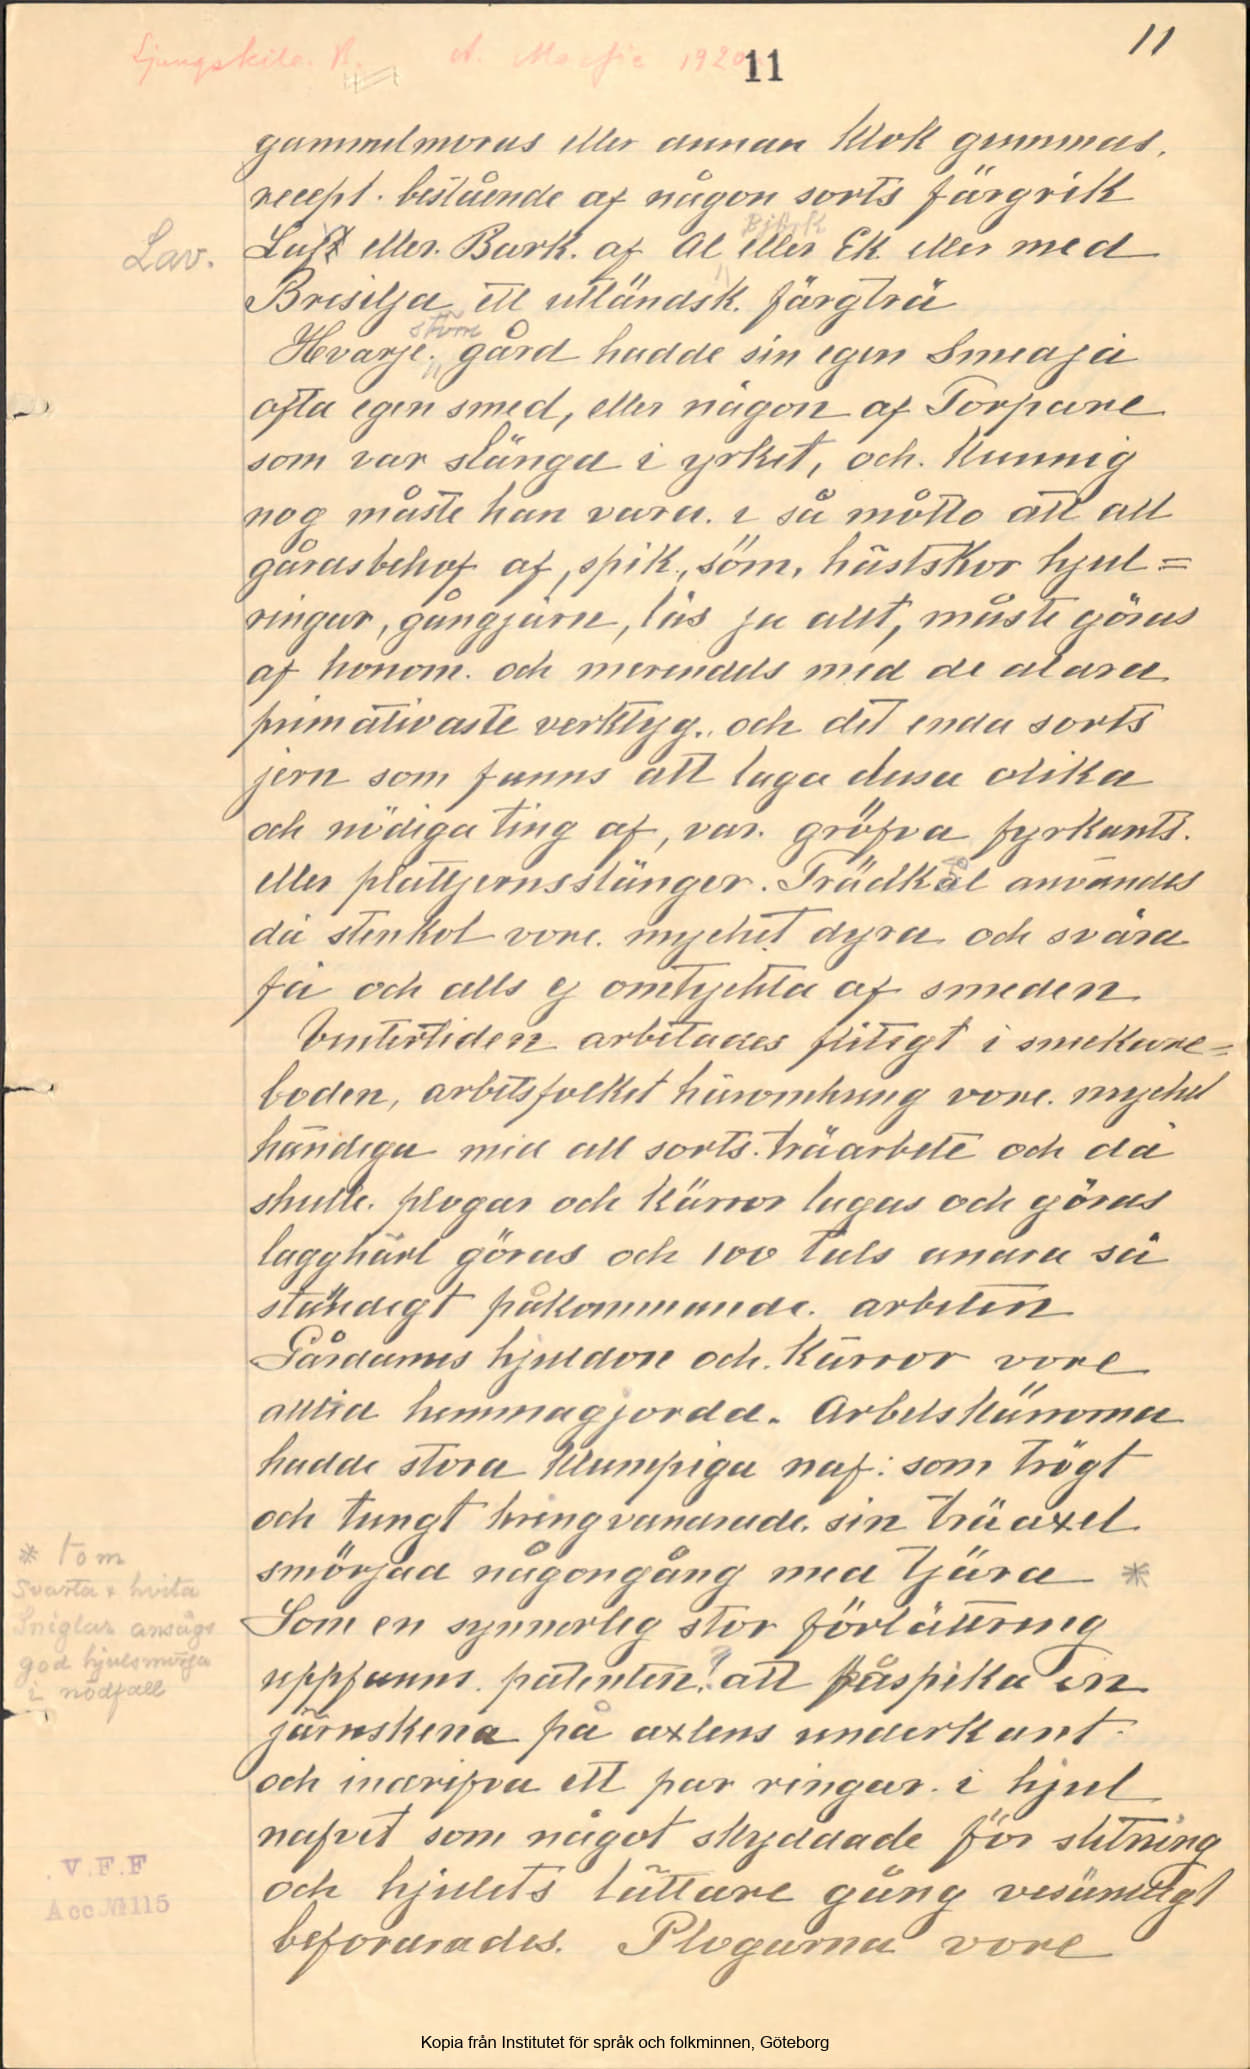 Ljungskile. A. Macfie 1920.
11
11
gammelmoras eller annan klok gummas.
recept. bestående af någon sorts färgrik
Laf eller. Bark. af Al Björk eller Ek. eller med
Lav.
Bresilja ett utländsk. färgträ
Hvarje. större gård hadde sin egen Smedja
ofta egen smed, eller någon af Torpare
som var slänga i yrket, och. kunnig
nog måste han vara. i så måtto att all
gårdsbehof af, spik., söm, hästskor hjul=
ringar, gångjärn, lås ja allt, måste göras
af honom. och merendels med de aldra
primativaste verktyg., och det enda sorts
jern som fanns att laga dessa olika
och nödiga ting af, var. gröfva fyrkants.
eller plattjernsstänger. Trädkål användes
då stenkol vore. mycket dyra och svåra
få och alls ej omtyckta af smeden
Vintertiden arbetades flitigt i snekare=
boden, arbetsfolket häromkring vore. mycket
händiga med all sorts. träarbete och då
skulle. plogar och kärror lagas och göras
laggkärl göras och 100 tals andra så
ständigt påkommande. arbeten
Gårdarnes hjuldon och. kärror vore
alltid hemmagjorda. Arbetskärrorna
hadde stora klumpiga naf: som trögt
och tungt kringvandrade. sin träaxel
smörjad någongång med tjära *
* tom
svarta & hvita
Sniglar ansågs
god hjulsmörja
i nödfall
Som en synnerlig stor förlättring
uppfanns. patenten!? att påspika en
järnskena på axlens underkant.
och indrifva ett par ringar. i hjul
nafvet som något skyddade för slitning
och hjulets lättare gång väsändtligt
befordrades. Plogarna vore
. V. F. F
Acc. № 115
Kopia från Institutet för språk och folkminnen, Göteborg